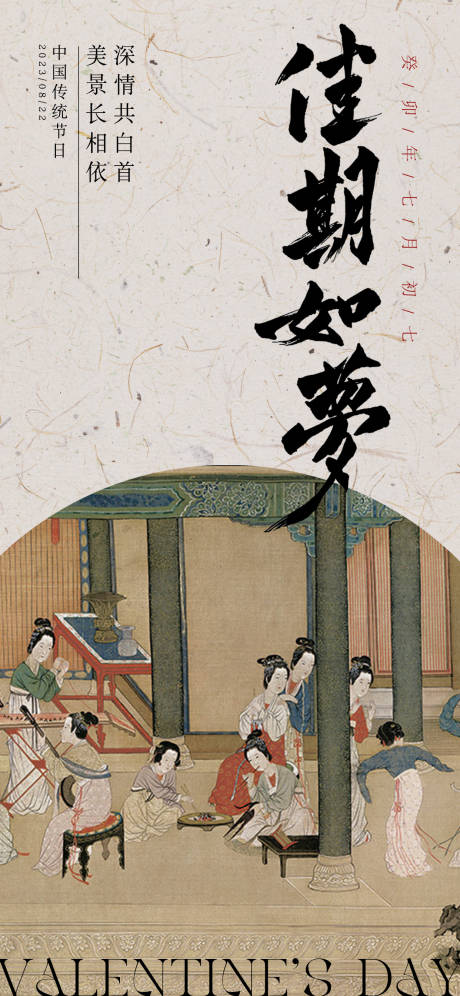 癸/卯/年/七/月/初/七
佳期如夢
深情共白首
美景长相依
中国传统节日
2023/08/22
VALENTINE'S DAY